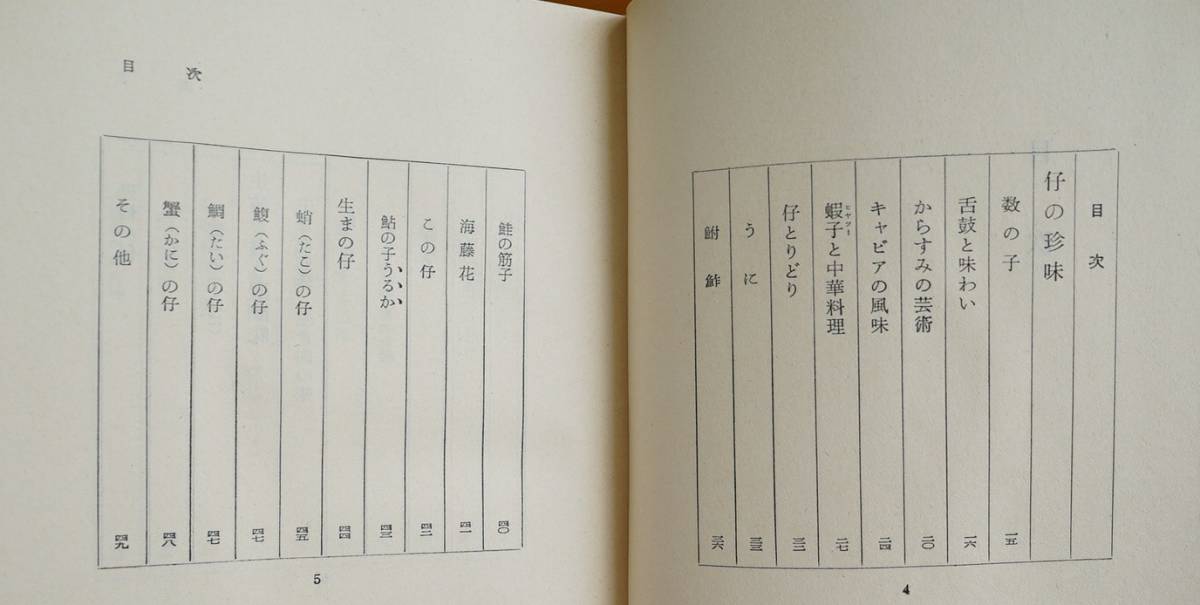 目次
仔の珍味
数の子 一五
舌鼓と味わい 一六
からすみの芸術 二〇
キャビアの風味 二四
蝦子と中華料理 二七
ヒヤツー
仔とりどり 三二
うに 三三
鮒鮓 三六
4
目次
鮭の筋子 四〇
海藤花 四一
この仔 四二
鮎の子うるか 四三
生まの仔 四四
蛸(たこ)の仔 四五
鰒(ふぐ)の仔 四七
鯛(たい)の仔 四七
蟹(かに)の仔 四八
その他 四九
5